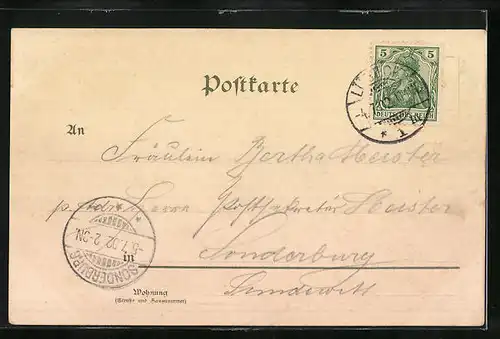 Postkarte
5 5
DEUTSCHES REICH
An
Fräulein Bertha Meister
p. Adr. Herrn Postsekretär Meister
in Sonderburg
Sundewitt
SONDERBURG
-5.7.02.2-3N.
Wohnung
(Straße und Hausnummer)